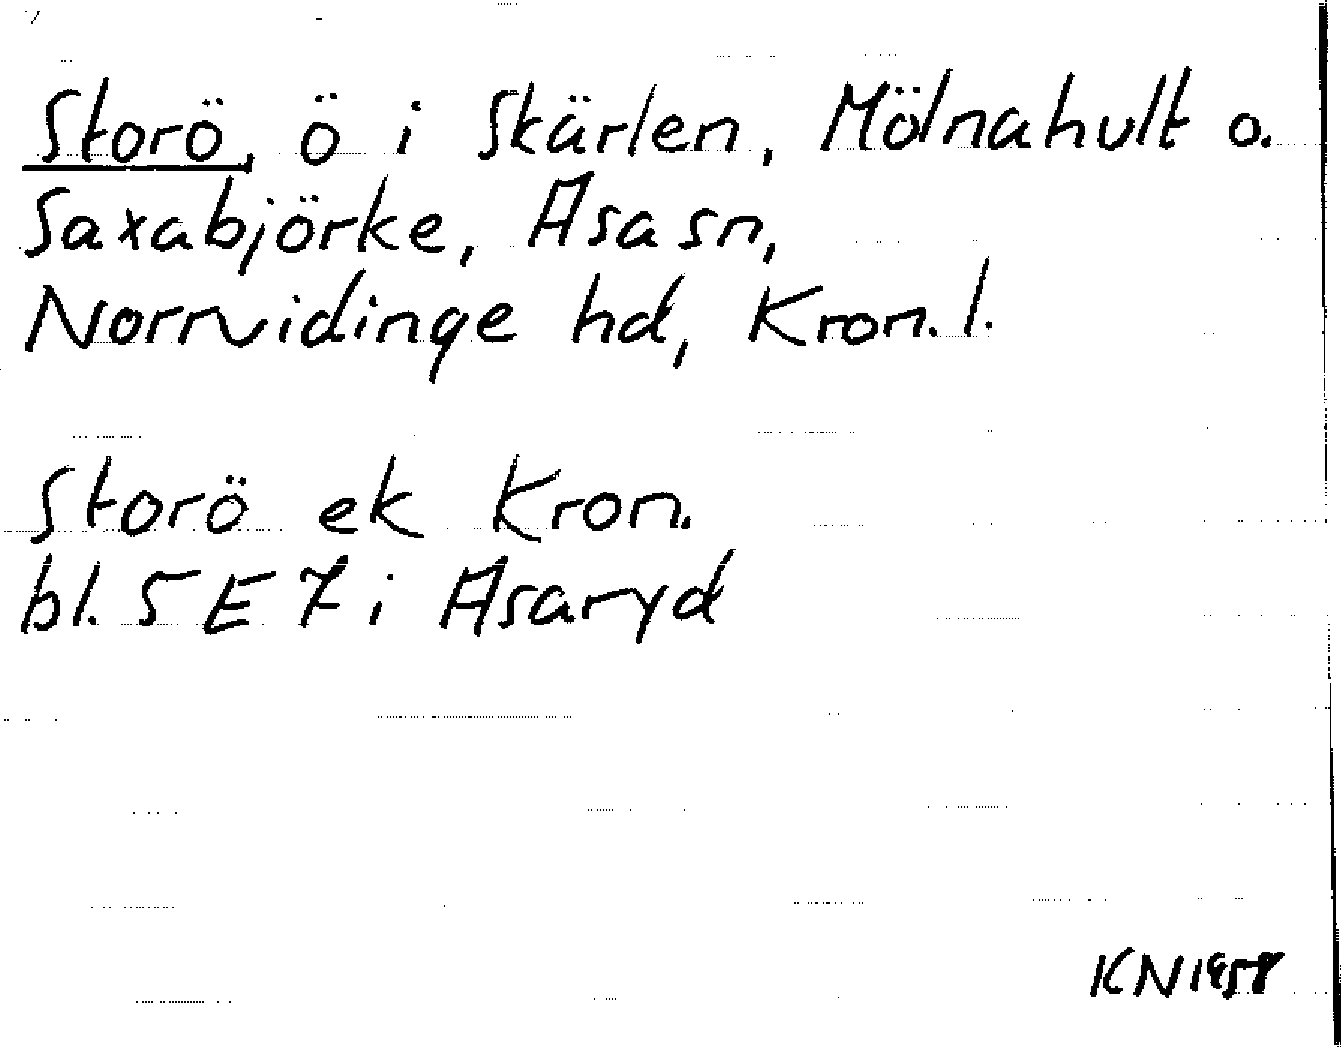 Storö, ö i Skärlen, Mölnahult o.
Saxabjörke, Asa sn,
Norrvidinge hd, Kron. l.
Storö ek Kron.
bl. 5 E 7 i Asaryd
KN 1958